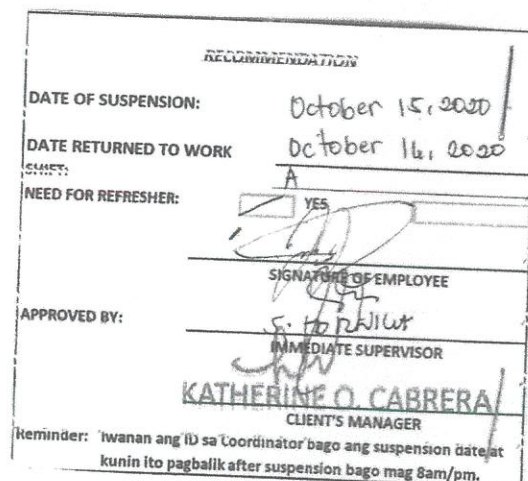 RECOMMENDATION
DATE OF SUSPENSION: October 15, 2020
DATE RETURNED TO WORK October 16, 2020
SHIFT: A
NEED FOR REFRESHER: YES
SIGNATURE OF EMPLOYEE
APPROVED BY:
IMMEDIATE SUPERVISOR
KATHERINE O. CABRERA
CLIENT'S MANAGER
Reminder: Iwanan ang ID sa Coordinator bago ang suspension date at
kunin ito pagbalik after suspension bago mag 8am/pm.